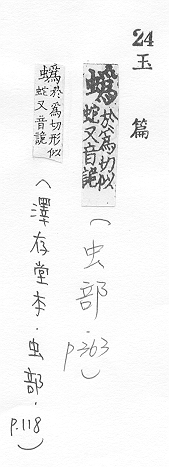 24
玉篇
蟡菸為切似
蛇又音詭
(虫部·p.363)
蟡菸為切形似
蛇又音詭
(澤存堂本·虫部·p.118)